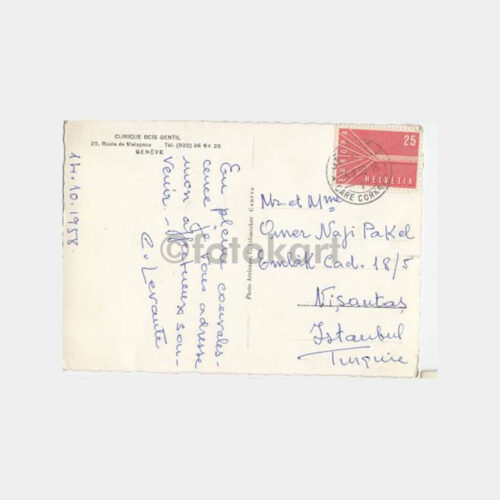 CLINIQUE BOIS GENTIL
25, Route de Malagnou Tél. (022) 36 61 25
GENÈVE
14.10.1958
En pleine convales-
cence je vous adresse
mon affectueux sou-
venir.
Levante
25
HELVETIA
GARE CORNAVIN
Mr. et Mme
Omer Naji Pakel
Emlâk Cad. 18/5
Nişantaş
Istanbul
Turquie
©fotokart
Genève